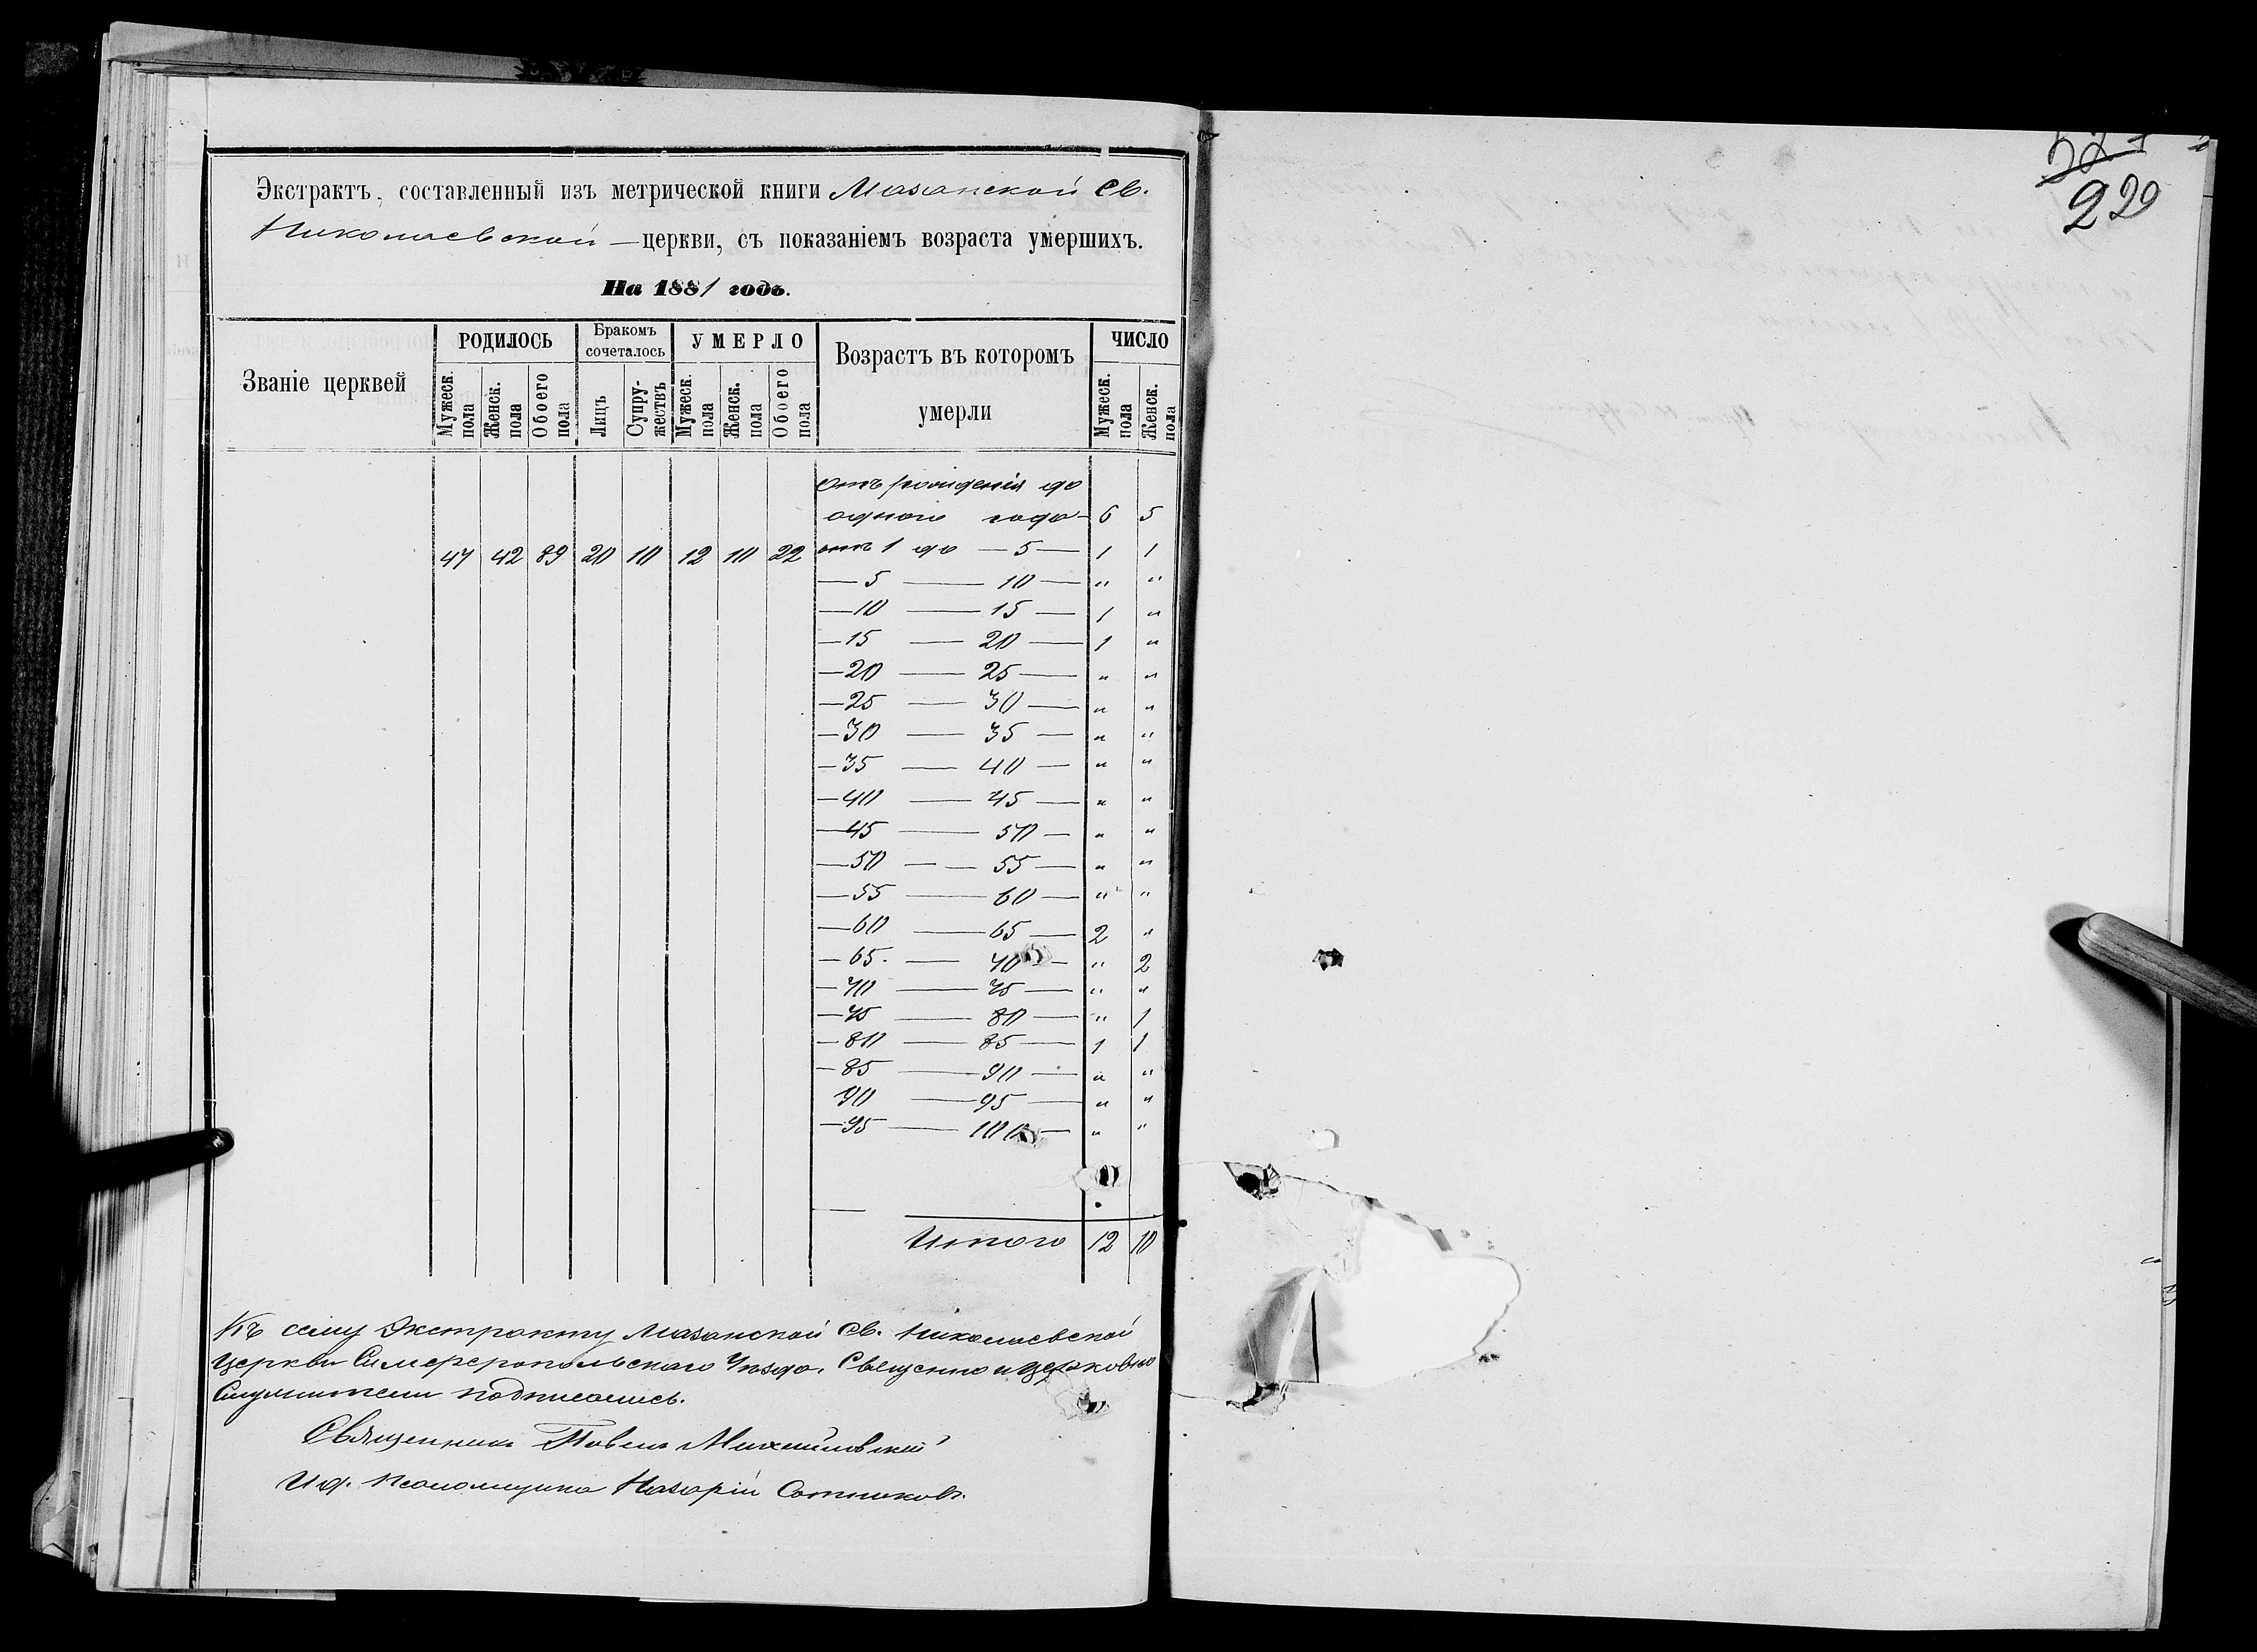 Экстрактъ, составленный изъ метрической книги Мазанской Св.
Николаевской — церкви, съ показаніемъ возраста умершихъ.
На 1881 годъ.
Званіе церквей
РОДИЛОСЬ
Бракомъ сочеталось
УМЕРЛО
Возрастъ въ которомъ умерли
ЧИСЛО
Мужеск. пола
Женск. пола
Обоего пола
Лицъ
Супружествъ
Мужеск. пола
Женск. пола
Обоего пола
Мужеск. пола
Женск. пола
отъ рожденія до
одного года — 6 5
47 42 89 20 10 12 10 22 отъ 1 до — 5 — 1 1
— 5 — 10 — " "
— 10 — 15 — 1 "
— 15 — 20 — 1 "
— 20 — 25 — " "
— 25 — 30 — " "
— 30 — 35 — " "
— 35 — 40 — " "
— 40 — 45 — " "
— 45 — 50 — " "
— 50 — 55 — " "
— 55 — 60 — " "
— 60 — 65 — 2 "
— 65 — 70 — " 2
— 70 — 75 — " "
— 75 — 80 — " 1
— 80 — 85 — 1 1
— 85 — 90 — " "
90 — 95 — " "
— 95 — 100 — " "
Итого 12 10
Къ сему Экстракту Мазанской Св. Николаевской
Церкви Симферопольскаго Уѣзда, Священно и церковно
Служители подписались.
Священникъ Павелъ Михайловскій
И.д. Псаломщика Назарій Сотниковъ.
229